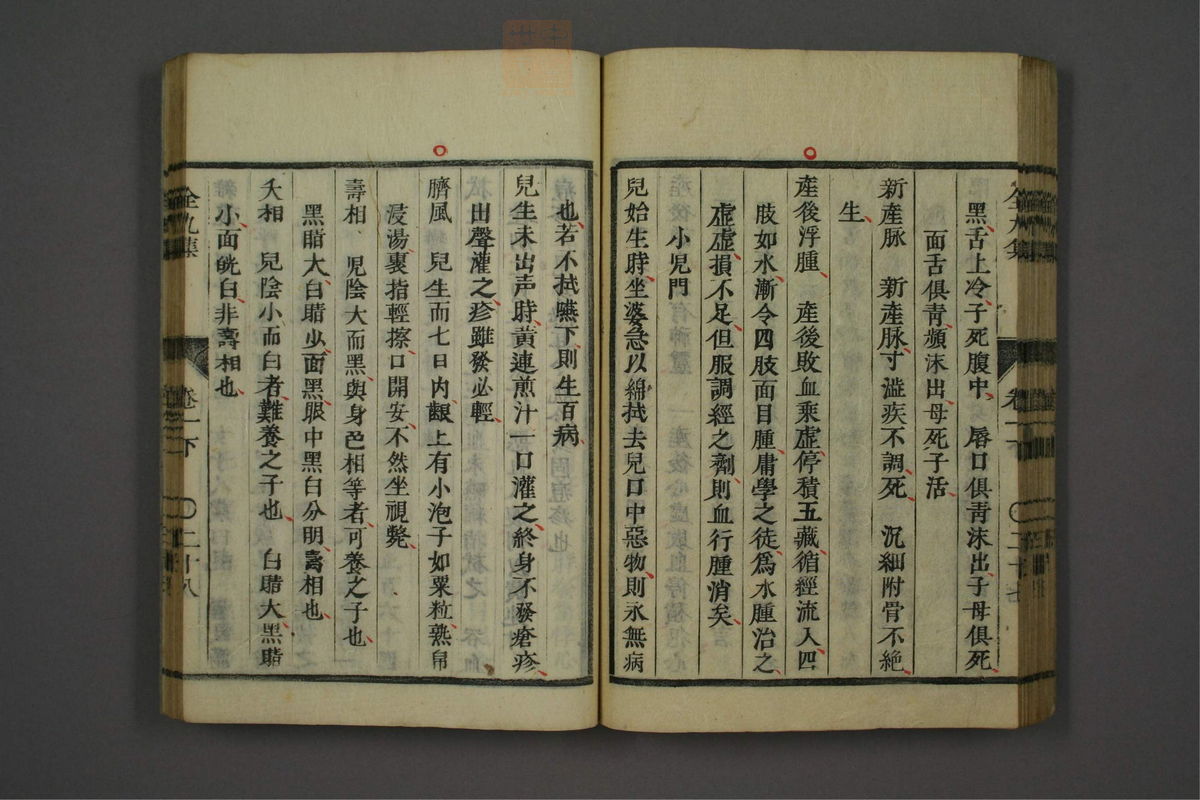 黑舌上冷子死腹中　唇口俱青沫出子母俱死
面舌俱青頻沫出母死子活
新產脉　新產脉寸澁疾不調死　沉細附骨不絶
生
產後浮腫　產後敗血乘虛停積五藏循經流入四
肢如水漸令四肢面目腫庸學之徒爲水腫治之
虛虛損不足但服調經之劑則血行腫消矣
小児門
兒始生時坐婆急以綿拭去兒口中惡物則永無病
全九集　卷一下　〇二十七
也若不拭嚥下則生百病
兒生未出声時黄連煎汁一口灌之終身不發瘡疹
出聲灌之疹雖發必輕
臍風　兒生而七日内齦上有小泡子如粟粒熟帛
浸湯裹指輕擦口開安不然坐視斃
壽相　児陰大而黑與身色相等者可養之子也
黑睛大白睛少面黑眼中黑白分明壽相也
夭相　兒陰小而白者難養之子也　白睛大黑睛
小面㿠白非壽相也
全九集　卷一下　〇二十八